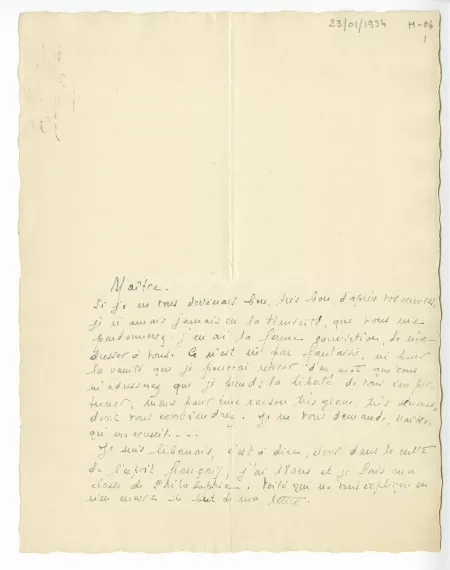 23/01/1934 M-06
1
Maître.
Si je ne vous devinais bon, très bon d'après vos oeuvres,
je n'aurais jamais eu la témérité, que vous me
pardonnerez, j'en ai la ferme conviction, de m'a-
dresser à vous. Ce n'est ni par fantaisie, ni pour
la vanité que je pourrai retirer d'un mot que vous
m'adresserez que je prends la liberté de vous im por-
tuner, mais pour une raison très grave, très
dont vous conviendrez. Je ne vous demande, Maître,
qu'un conseil...
Je suis libanais, c'est à dire, élevé dans le culte
de l'esprit français, j'ai 18 ans et je fais ma
classe de Philosophie. Voilà qui ne vous explique en
rien encore le but de ma lettre.